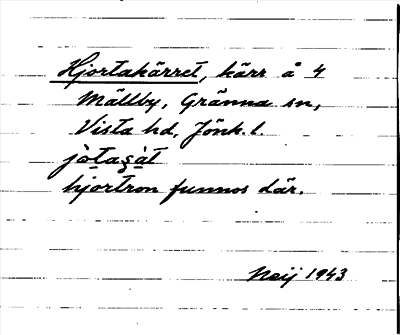 Hjortakärret, kärr å 4
Mällby, Gränna sn,
Vista hd, Jönk. l
hjortron funnos där.
Neij 1943